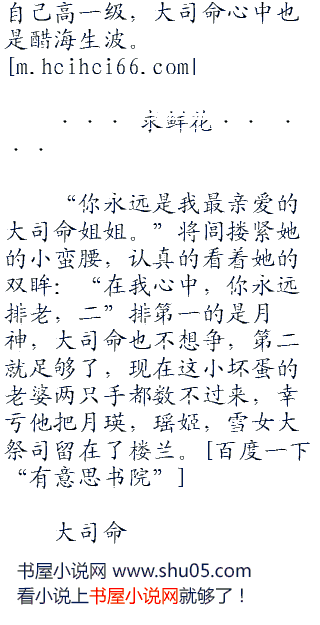 自己高一级，大司命心中也
是醋海生波。
[m.hcihci66.com]
· · · 求鲜花 · · ·
· ·
“你永远是我最亲爱的
大司命姐姐。”将闾搂紧她
的小蛮腰，认真的看着她的
双眸：“在我心中，你永远
排老，二”排第一的是月
神，大司命也不想争，第二
就足够了，现在这小坏蛋的
老婆两只手都数不过来，幸
亏他把月瑛，瑶姬，雪女大
祭司留在了楼兰。[百度一下
“有意思书院”]
大司命
书屋小说网 www.shu05.com
看小说上书屋小说网就够了！